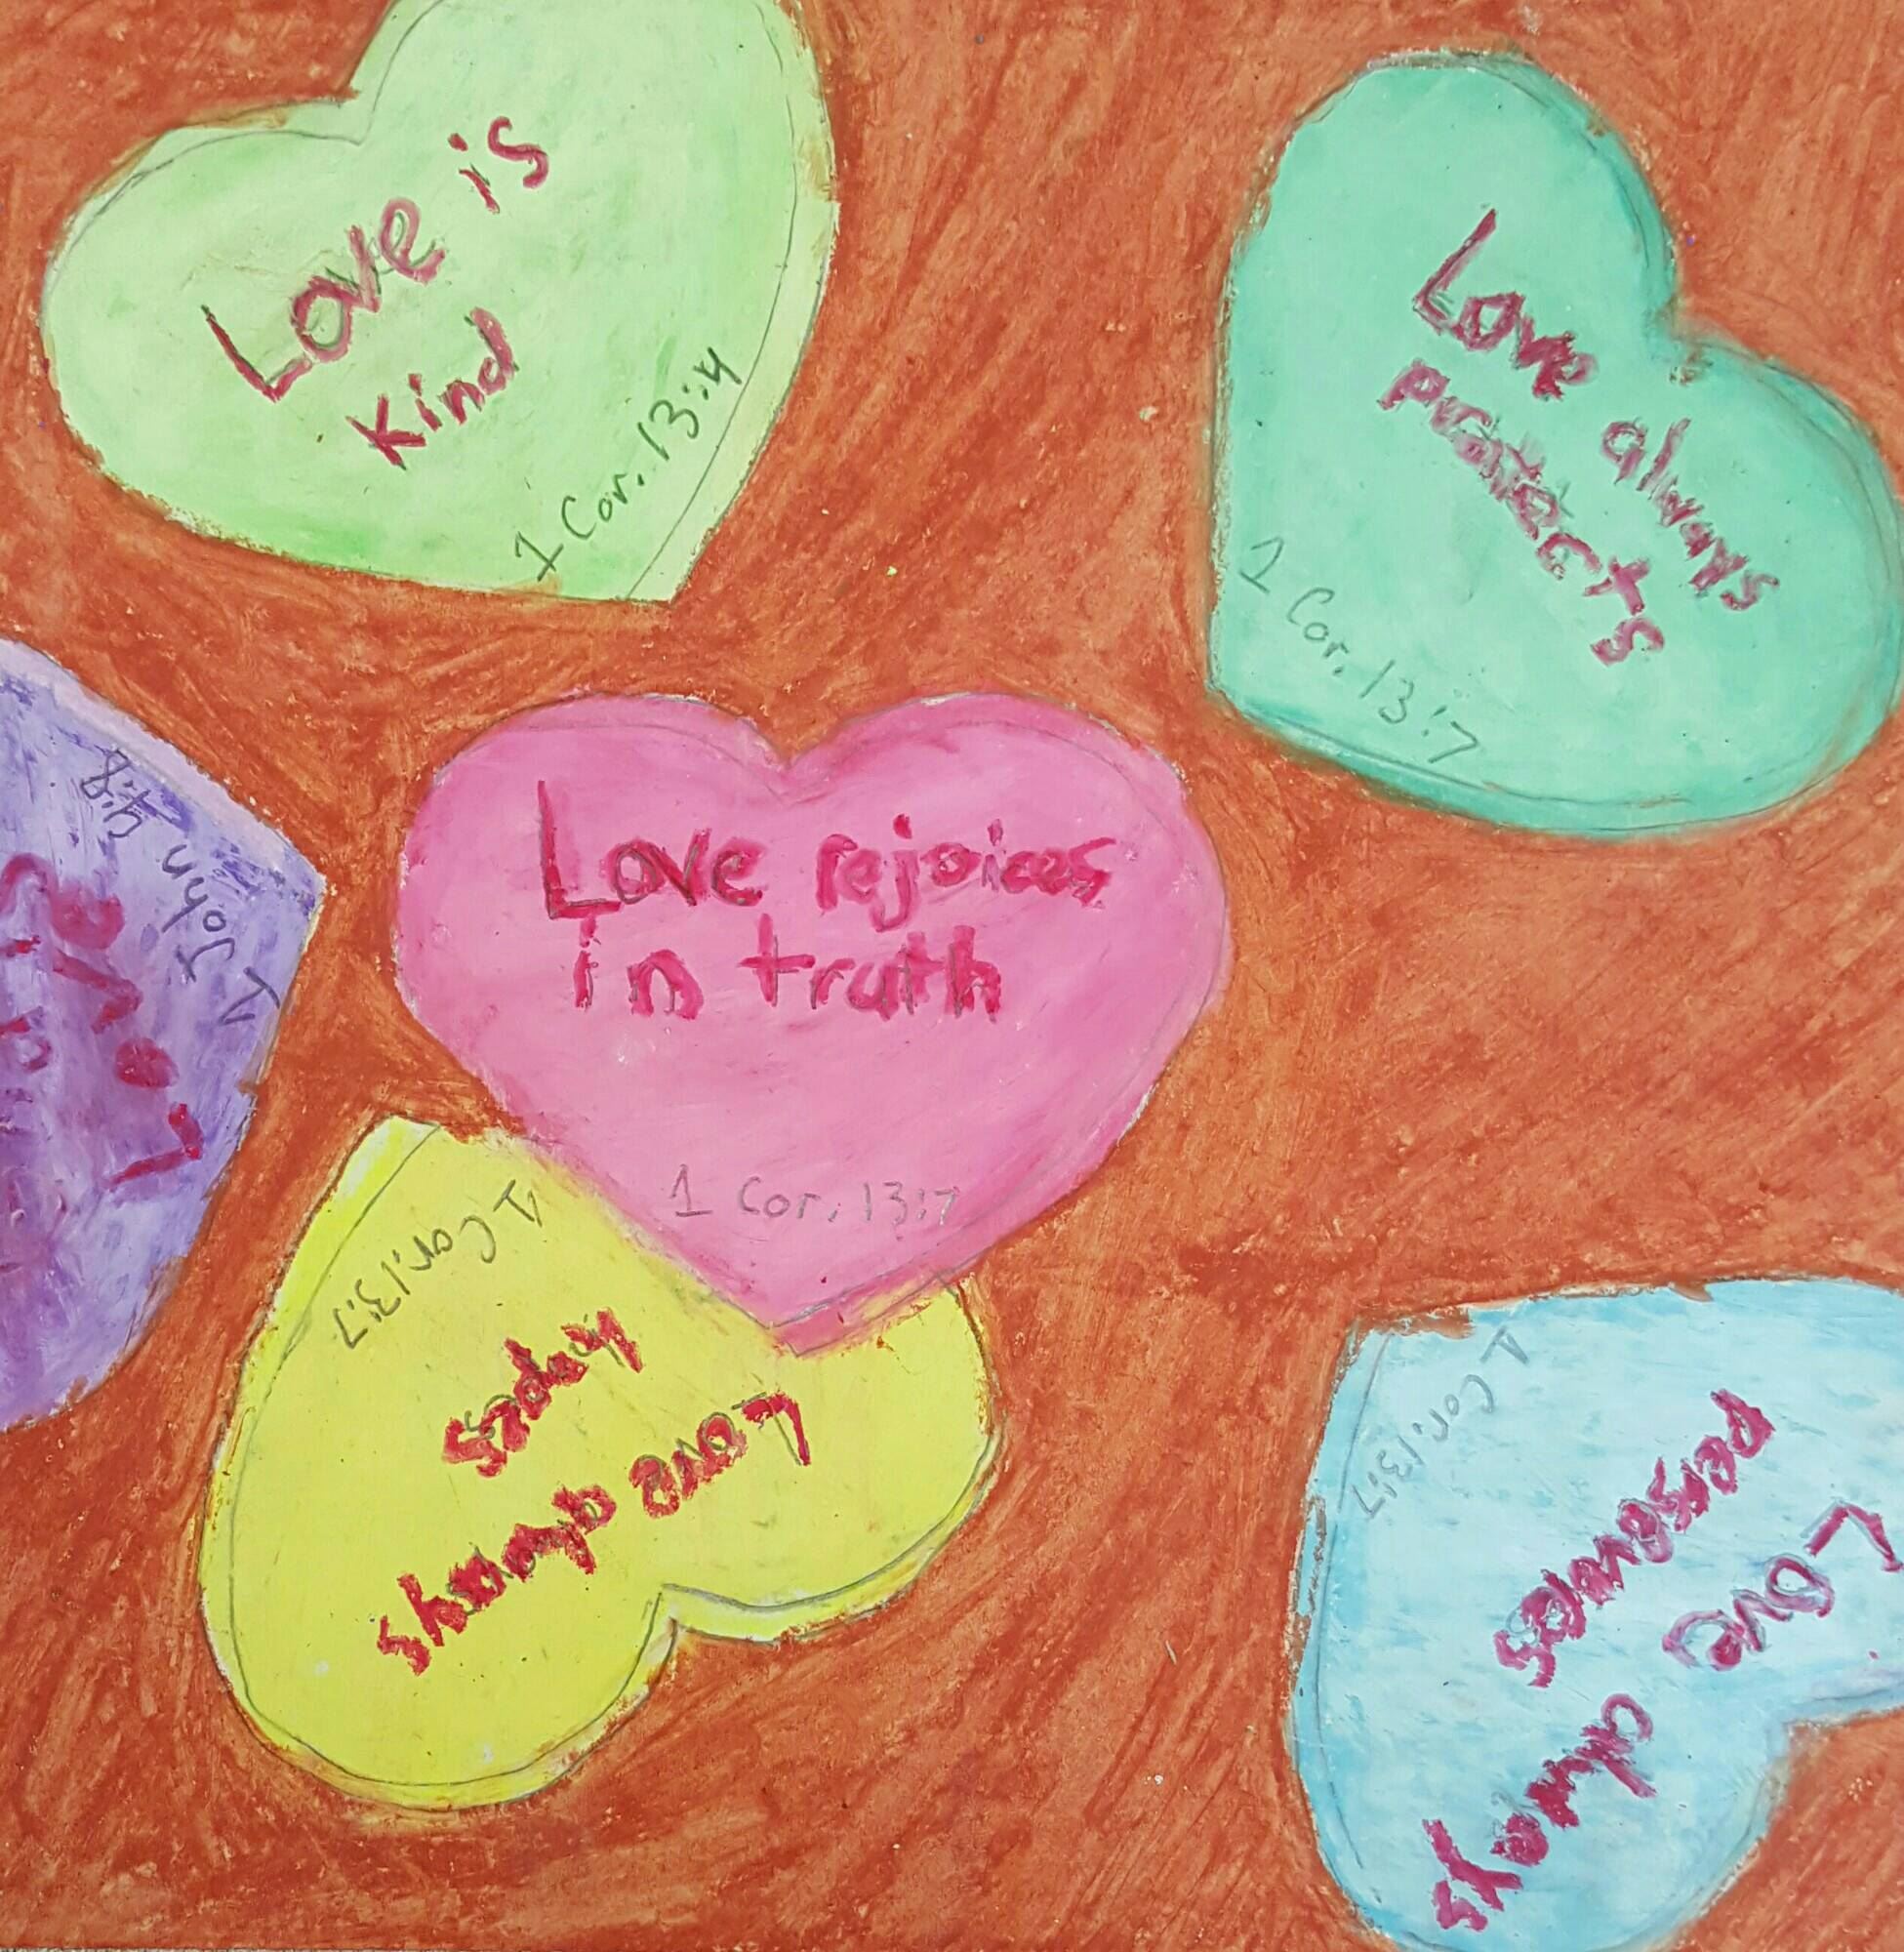 Love is
kind
1 Cor. 13:4
Love always
protects
1 Cor. 13:7
1 John 4:8
Love
Love rejoices
in truth
1 Cor. 13:7
Love always
hopes
1 Cor. 13:7
Love always
perseveres
1 Cor. 13:7